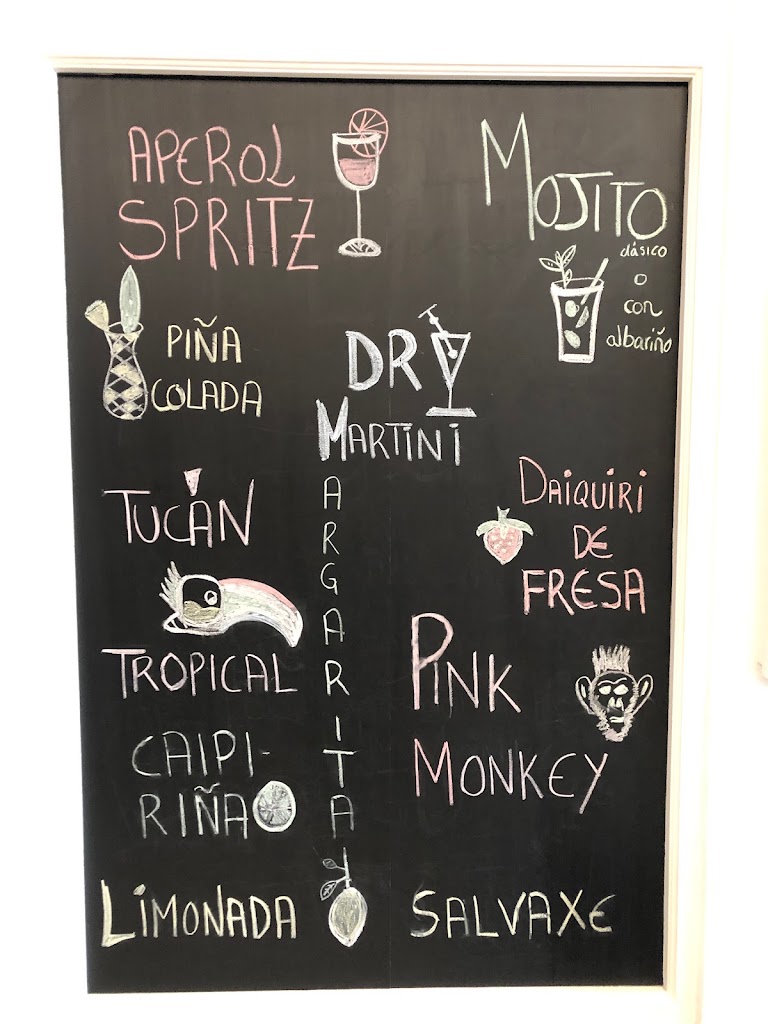 APEROL
SPRITZ
MOJITO
clásico
o
con
albariño
PIÑA
COLADA
DRY
MARTINI
MARGARITA
TUCÁN
TROPICAL
DAIQUIRI
DE
FRESA
PINK
MONKEY
CAIPI-
RIÑA
LIMONADA
SALVAXE